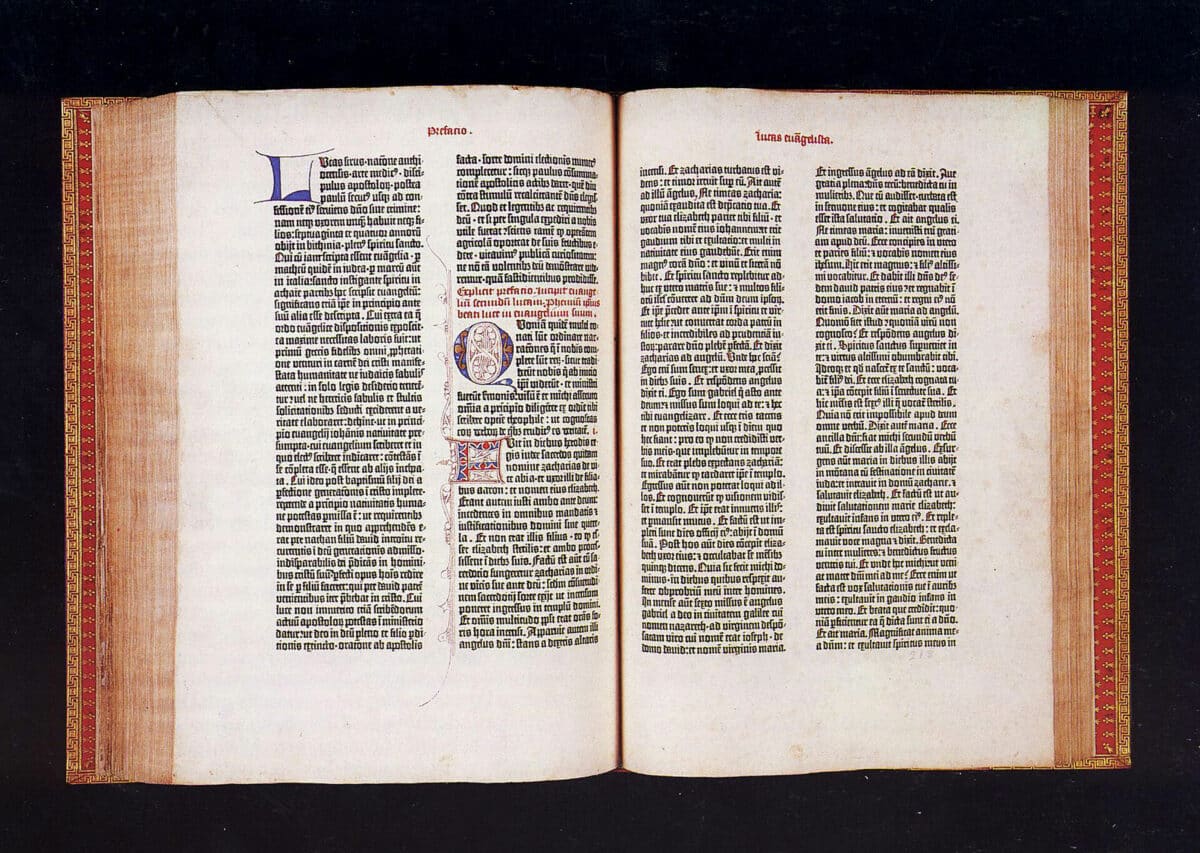 Prefacio.
Lucas sirus·natione anthi-
ocensis·arte medic⁹·disci-
pulus apostoloꝝ·postea
paulū secut⁹ usqꝫ ad con-
fessionē ei⁹ serviens dño sine crimine:
nam neqꝫ uxorem unq̄ habuit neqꝫ fi-
lios: septuaginta et quatuor annorū
obijt in bithinia·plen⁹ spiritu sancto.
Qui cū iam scripta essent euāgelia·p
matheū quidē in iudea·p marcū aūt
in italia: sancto instigante spiritu in
achaie partibꝫ hoc scripsit euangeliū:
significans etiā ip̄e in principio ante
suū alia esse descripta. Cui extra ea q̄
ordo euāgelice dispositionis exposcit·
ea maxime necessitas laboris fuit: ut
primū grecis fidelibꝫ omni prophetati-
one venturi in carnē dei cristi manife-
stata humanitate ne iudaicis fabulis
attenti: in solo legis desiderio tenerē-
tur: vel ne hereticis fabulis et stultis
solicitationibꝫ seducti exciderent a ve-
ritate elaboraret: dehinc·ut in princi-
pio euangelij iohānis nativitate pre-
sumpta·cui euangelium scriberet et in
quo elect⁹ scriberet indicaret: cōtestās ī
se cōpleta esse·q̄ essent ab alijs incho-
ata. Cui ideo post baptismū filij dei a
pfectione generationis ī cristo implete·
repetende a principio nativitatis huma-
ne potestas pmissa ē: ut requirentibꝫ
demonstraret in quo apprehendēs e-
rat per nathan filiū david introitu
recurrentis ī deū generationis admisso·
indisparabilis dei p̄dicās in homini-
bus cristū suū·pfecti opus hoīs redire
in se p filiū faceret: qui per david patrē
venientibus iter p̄bebat in cristo. Cui
luce non immerito etiā scribēdorum
actuū apostoloꝝ potestas ī ministerio
datur: ut deo in deū pleno et filio pdi-
tionis extincto·oratione ab apostolis
facta·sorte domini electionis numer⁹
compleretur: sicqꝫ paulus cōsumma-
tionē apostolicis actibꝫ daret·quē diu
cōtra stimulū recalcitrantē dn̄s elegis-
set. Quod et legentibꝫ ac requirentibꝫ
deū·et si per singula expediri a nobis
utile fuerat: sciens tamē q̄ operantē
agricolā oporteat de suis fructibus e-
dere·vitavim⁹ publicā curiositatem:
ne nō tā volentibꝫ deū demōstrare vide-
remur·quā fastidientibus prodidisse.
Explicit prefacio. Incipit euange-
liū secundū lucam. Prohemiū ipsius
beati luce in euangelium suum.
Quoniā quidē multi co-
nati sūt ordinare nar-
rationes q̄ ī nobis com-
plete sūt rerū·sicut tradi-
derūt nobis q̄ ab initio
ip̄i viderūt·et ministri
fuerūt sermonis: visū ē et michi assecuto
omnia a principio diligēter ex ordīe tibi
scribere optīe theophile: ut cognoscas
eoꝝ verboꝝ de qibꝫ erudit⁹ es veritatē. I.
Fuit in diebus herodis re-
gis iudee sacerdos quidam
nomine zacharias de vi-
ce abia·et uxor illi de filia-
bus aaron: et nomen eius elizabeth.
Erant autem iusti ambo ante deum·
incedentes in omnibus mandatis et
iustificationibus domini sine quere-
la. Et non erat illis filius·eo q̄ es-
set elizabeth sterilis: et ambo proces-
sissent ī diebꝫ suis. Factū est aūt cū sa-
cerdotio fungeretur zacharias in ordi-
ne vicis sue ante deū: scdm cōsuetudi-
nem sacerdotij sorte exijt ut incensum
poneret ingressus in templū domini.
Et omīs multitudo pp̄li erat orās fo-
ris hora incensi. Apparuit autem illi
angelus dn̄i: stans a dextris altaris
Lucas euāgelista.
incensi. Et zacharias turbatus est vi-
dens: et timor irruit sup eū. Ait autē
ad illū āgelus. Ne timeas zacharia:
quoniā exaudita est dep̄catio tua. Et
uxor tua elizabeth pariet tibi filiū·et
vocabis nomē eius iohannem: et erit
gaudium tibi et exultatio: et multi in
nativitate eius gaudebūt. Erit enim
magn⁹ corā dn̄o: et vinū et sicerā nō
bibet. Et spiritu sancto replebitur ad-
huc ex utero matris sue: et multos filio-
rū isrl cōvertet ad dn̄m deum ipsoꝝ.
Et ip̄e p̄cedet ante ip̄m ī spiritu et vir-
tute helie: ut convertat corda patrū in
filios·et incredibiles ad prudentiā iu-
stoꝝ: parare dn̄o plebē pfectā. Et dixit
zacharias ad angelū. Unde hoc sciā?
Ego em̄ sum senex: et uxor mea p̄cessit
in diebꝫ suis. Et respōdens angelus
dixit ei. Ego sum gabriel q̄ asto ante
deum: et missus sum loqui ad te: et hec
tibi euangelizare. Et ecce eris tacens
et non poteris loqui usqꝫ ī diem quo
hec fiant: pro eo q̄ non credidisti ver-
bis meis·que implebūtur in tempore
suo. Et erat plebs expectans zachariā:
et mirabantur q̄ tardaret ip̄e ī templo.
Egressus aūt non poterat loqui ad il-
los. Et cognoverūt q̄ visionem vidis-
set ī templo. Et ip̄e erat innuens illis:
et pmansit mutus. Et factū est ut im-
pleti sunt dies officij ei⁹: abijt ī domū
suā. Post hos aūt dies cōcepit eliza-
beth uxor eius: et occultabat se mēsibꝫ
quinqꝫ dicens. Quia sic fecit michi do-
minus·in diebus quibus respexit au-
ferre obprobriū meū inter homines.
In mense aūt sexto missus ē angelus
gabriel a deo in civitatem galilee cui
nomen nazareth·ad virginem despō-
satam viro cui nomē erat ioseph·de
domo david: et nomē virginis maria.
Et ingressus āgelus ad eā dixit. Ave
gratia plena: dn̄s tecū: benedicta tu in
mulieribꝫ. Que cū audisset·turbata est
in sermone eius: et cogitabat qualis
esset ista salutatio. Et ait angelus ei.
Ne timeas maria: invenisti em̄ grati-
am apud deū. Ecce concipies in utero
et paries filiū: et vocabis nomen eius
ihesum. Hic erit magnus: et fili⁹ altissi-
mi vocabitur. Et dabit illi dn̄s de⁹ se-
dem david patris eius: et regnabit ī
domo iacob in eternū: et regni ei⁹ nō
erit finis. Dixit aūt maria ad angelū.
Quomō fiet istud: quoniā virū non
cognosco? Et respōdens angelus di-
xit ei. Spiritus sanctus superveniet in
te: et virtus altissimi obumbrabit tibi.
Ideoqꝫ et qd̄ nascet ex te sanctū: voca-
bit filī⁹ dei. Et ecce elizabeth cognata tu-
a: et ip̄a cōcepit filiū ī senectute sua. Et
hic mēsis est sext⁹ illi q̄ vocat sterilis.
Quia nō erit impossibile apud deum
omne verbū. Dixit aūt maria. Ecce
ancilla dn̄i: fiat michi secundū verbū
tuū. Et discessit ab illa āgelus. Exsur-
gens aūt maria in diebus illis abijt
in mōtana cū festinatione in civitatē
iuda: et intravit in domū zacharie·et
salutavit elizabeth. Et factū est ut au-
divit salutationem marie elizabeth:
exultavit infans in utero ei⁹. Et reple-
ta est spiritu sancto elizabeth: et excla-
mavit voce magna et dixit. Benedicta
tu inter mulieres: et benedictus fructus
ventris tui. Et unde hoc michi: ut veni-
at mater dn̄i mei ad me? Ecce enim ut
facta est vox salutationis tue ī aurībꝫ
meis: exultavit in gaudio infans in
utero meo. Et beata que credidit: quo-
niā pficientur ea q̄ dicta sunt ti a dn̄o.
Et ait maria. Magnificat anima me-
a dn̄m: et exultavit spiritus meus in